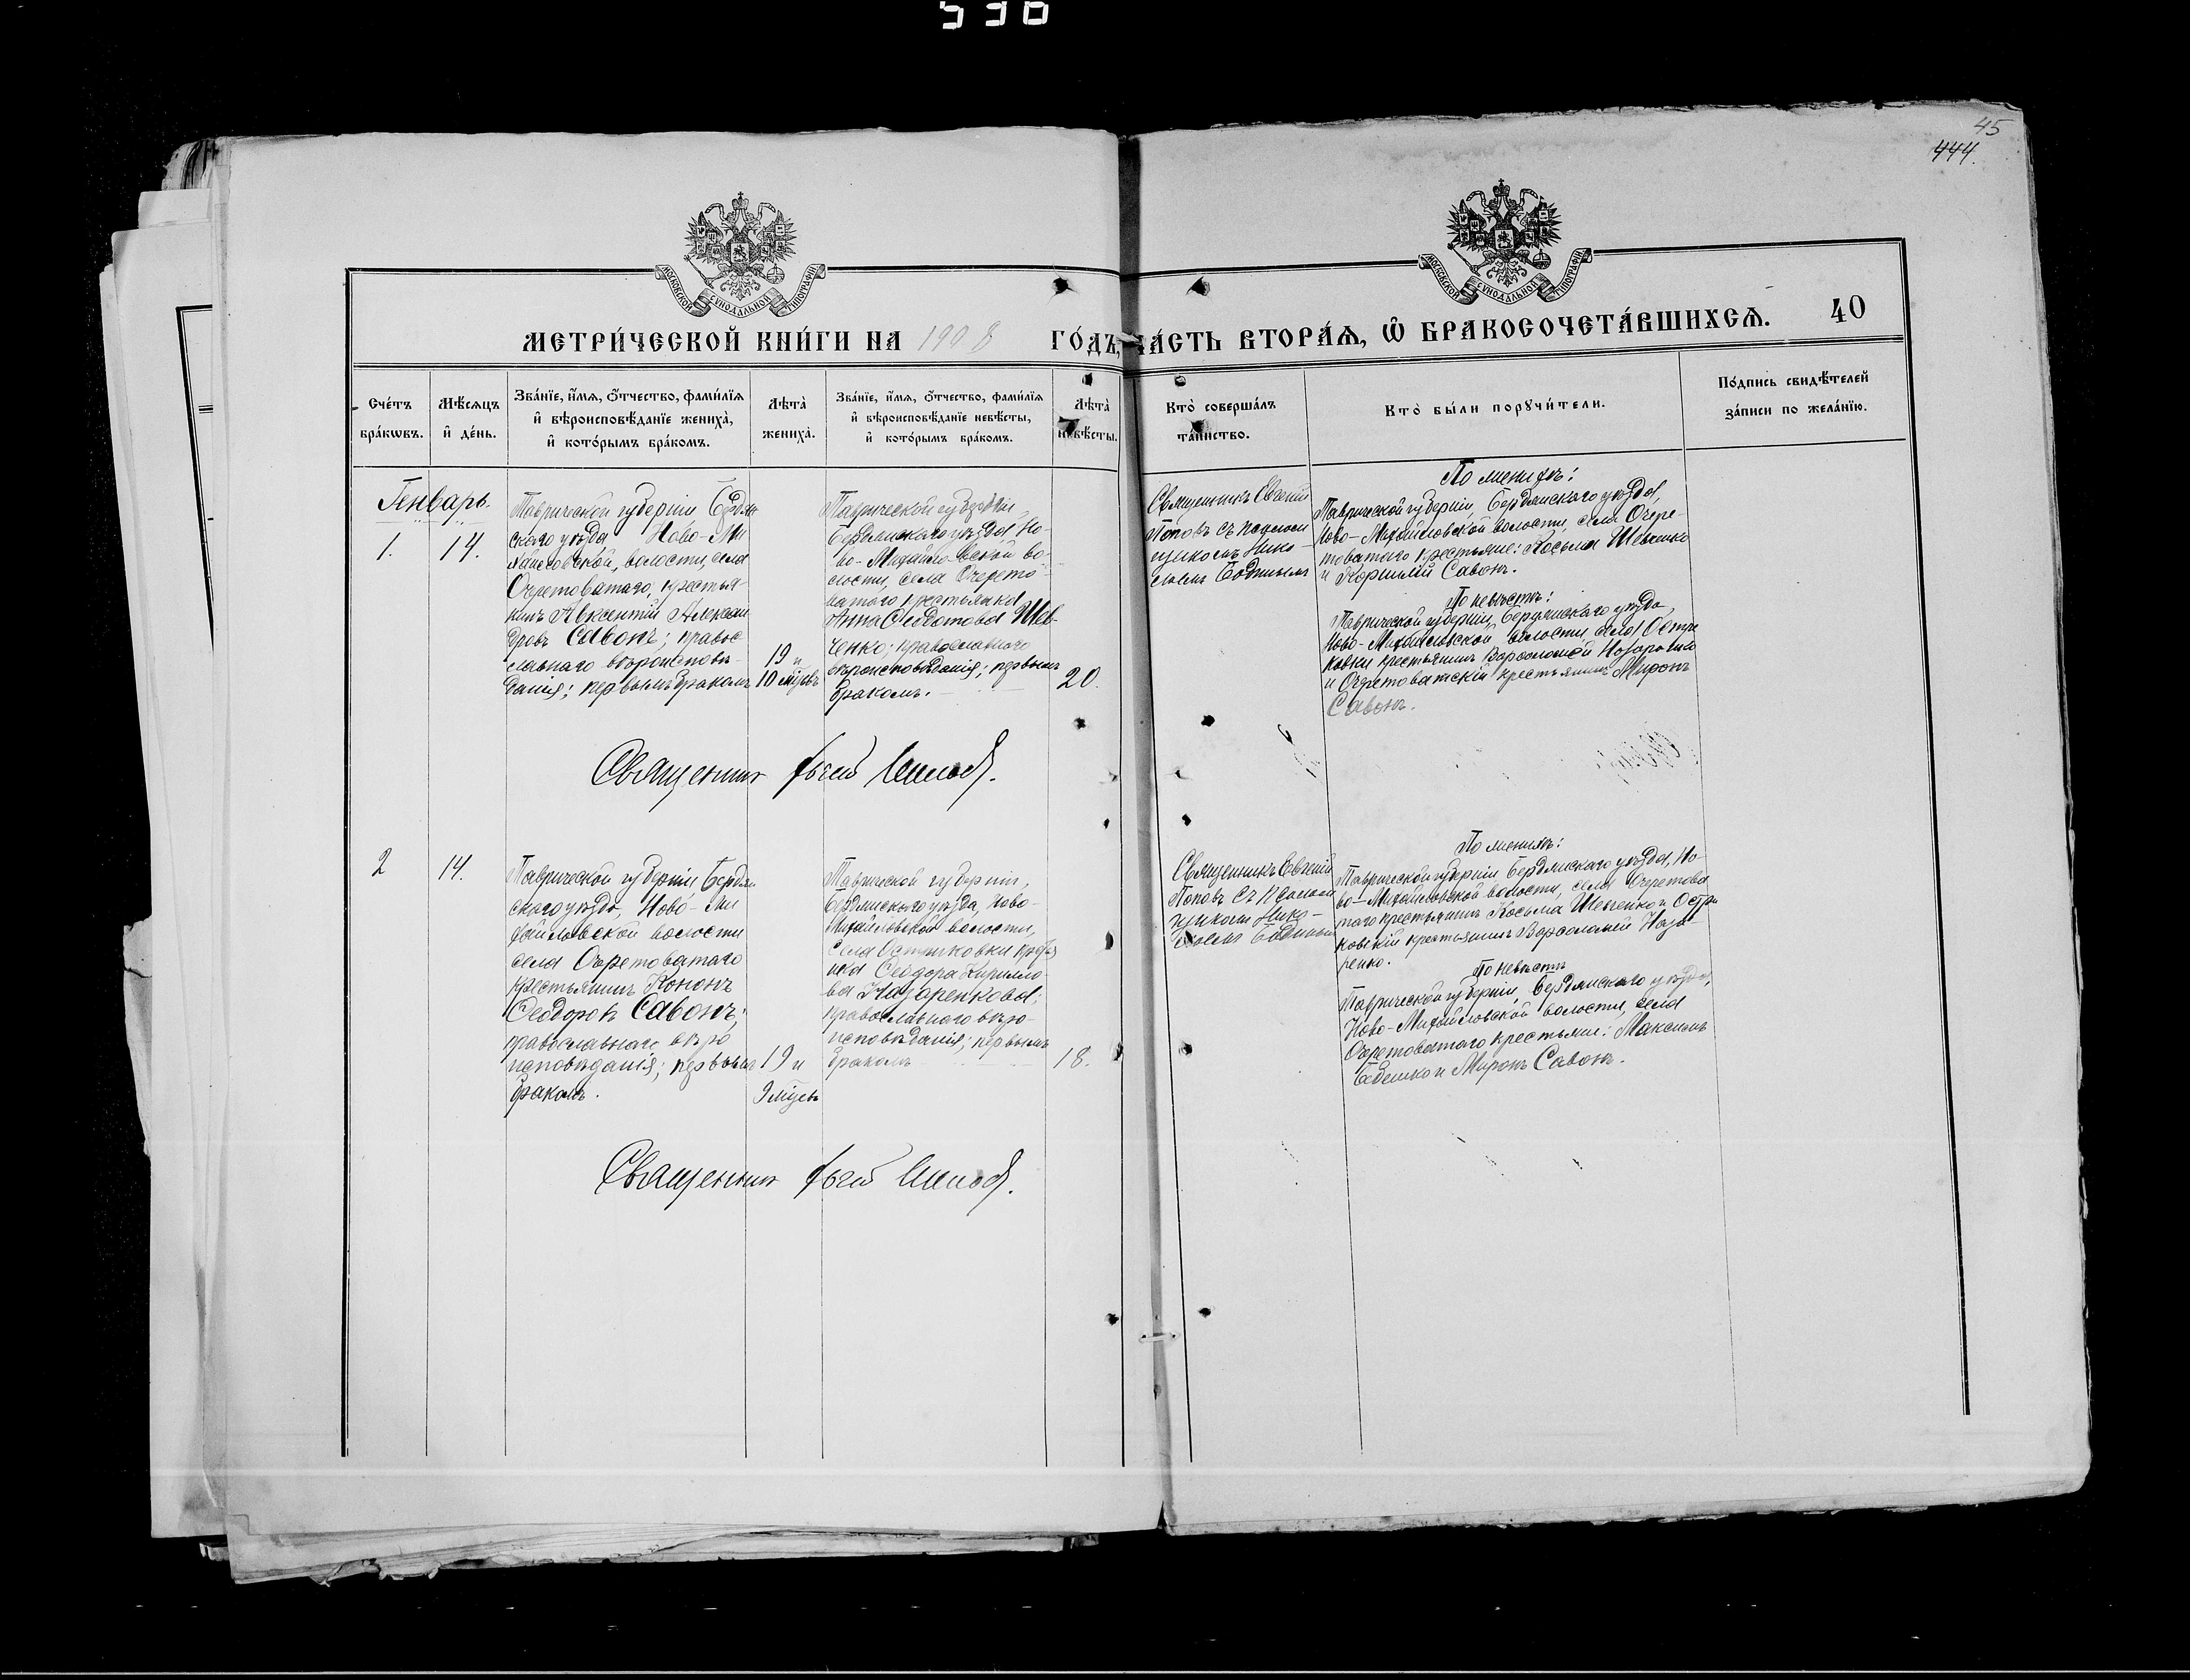 45
444.
МОСКОВСКОЙ СѴНОДАЛЬНОЙ ТИПОГРАФІИ
МОСКОВСКОЙ СѴНОДАЛЬНОЙ ТИПОГРАФІИ
МЕТРИ́ЧЕСКОЙ КНИ́ГИ НА 1908 ГО́ДЪ, ЧА́СТЬ ВТОРА́Ѧ, Ѡ҆ БРАКОСОЧЕТА́ВШИХСѦ. 40
Сче́тъ
бра́кѡвъ.
Мѣ́сѧцъ
и҆ де́нь.
Зва́нїе, и҆́мѧ, ѻ҆́тчество, фами́лїѧ
и҆ вѣроисповѣ́данїе жениха̀,
и҆ кото́рымъ бра́комъ.
Лѣта̀
жениха̀.
Зва́нїе, и҆́мѧ, ѻ҆́тчество, фами́лїѧ
и҆ вѣроисповѣ́данїе невѣ́сты,
и҆ кото́рымъ бра́комъ.
Лѣта̀
невѣ́сты.
Кто̀ соверша́лъ
та́инство.
Кто̀ бы́ли порꙋчи́тели.
По́дпись свидѣ́телей
за́писи по жела́нїю.
Генварь.
1.
14.
Таврической губерніи Бердян
скаго уѣзда Ново-Ми
хайловской, волости, села
Очеретоватаго, крестья-
нинъ Авксентій Алексан
дровъ Савонъ; правос
лавнаго вѣроисповѣ-
данія; первымъ бракомъ
19 и
10 мѣсяцевъ
Таврической губерніи,
Бердянскаго уѣзда, Но-
во-Михайловской во-
лости, села Очерето-
ватаго крестьянка
Анна Феодотова Шев-
ченко; православнаго
вѣроисповѣданія; первымъ
бракомъ.
20.
Священникъ Евгеній
Поповъ съ псаломщ
щикомъ Нико-
лаемъ
По женихѣ:
Таврической губерніи, Бердянскаго уѣзда,
Ново-Михайловской волости, села Очере-
товатаго крестьяне: Косьма Шевченко
и Корнилій Савонъ.
По невѣстѣ:
Таврической губерніи, Бердянскаго уѣзда,
Ново-Михайловской волости, села Остри
ковки крестьянинъ Варфоломей Назаренко
и Очеретоватскій крестьянинъ Миронъ
Савонъ.
Священникъ
2
14.
Таврической губерніи Бердян
скаго уѣзда, Ново-Ми
хайловской волости
села Очеретоватаго
крестьянинъ Кононъ
Феодоровъ Савонъ;
православнаго вѣро
исповѣданія; первымъ
бракомъ.
19 и
9 мѣсяцевъ
Таврической губерніи,
Бердянскаго уѣзда, Ново-
Михайловской волости,
села Остриковки крестья
нка Феодора Кирилло-
ва Назаренкова;
православнаго вѣро-
исповѣданія; первымъ
бракомъ
18.
Священникъ Евгеній
Поповъ съ псаломщ
щикомъ Нико-
лаемъ
По женихѣ:
Таврической губерніи Бердянскаго уѣзда, Но-
во-Михайловской волости, села Очеретова
таго крестьянинъ Косьма Шевченко и Остри
ковскій крестьянинъ Варфоломей Наза-
ренко.
По невѣстѣ
Таврической губерніи, Бердянскаго уѣзда,
Ново-Михайловской волости, села
Очеретоватаго крестьяне: Максимъ
и Миронъ Савонъ.
Священникъ